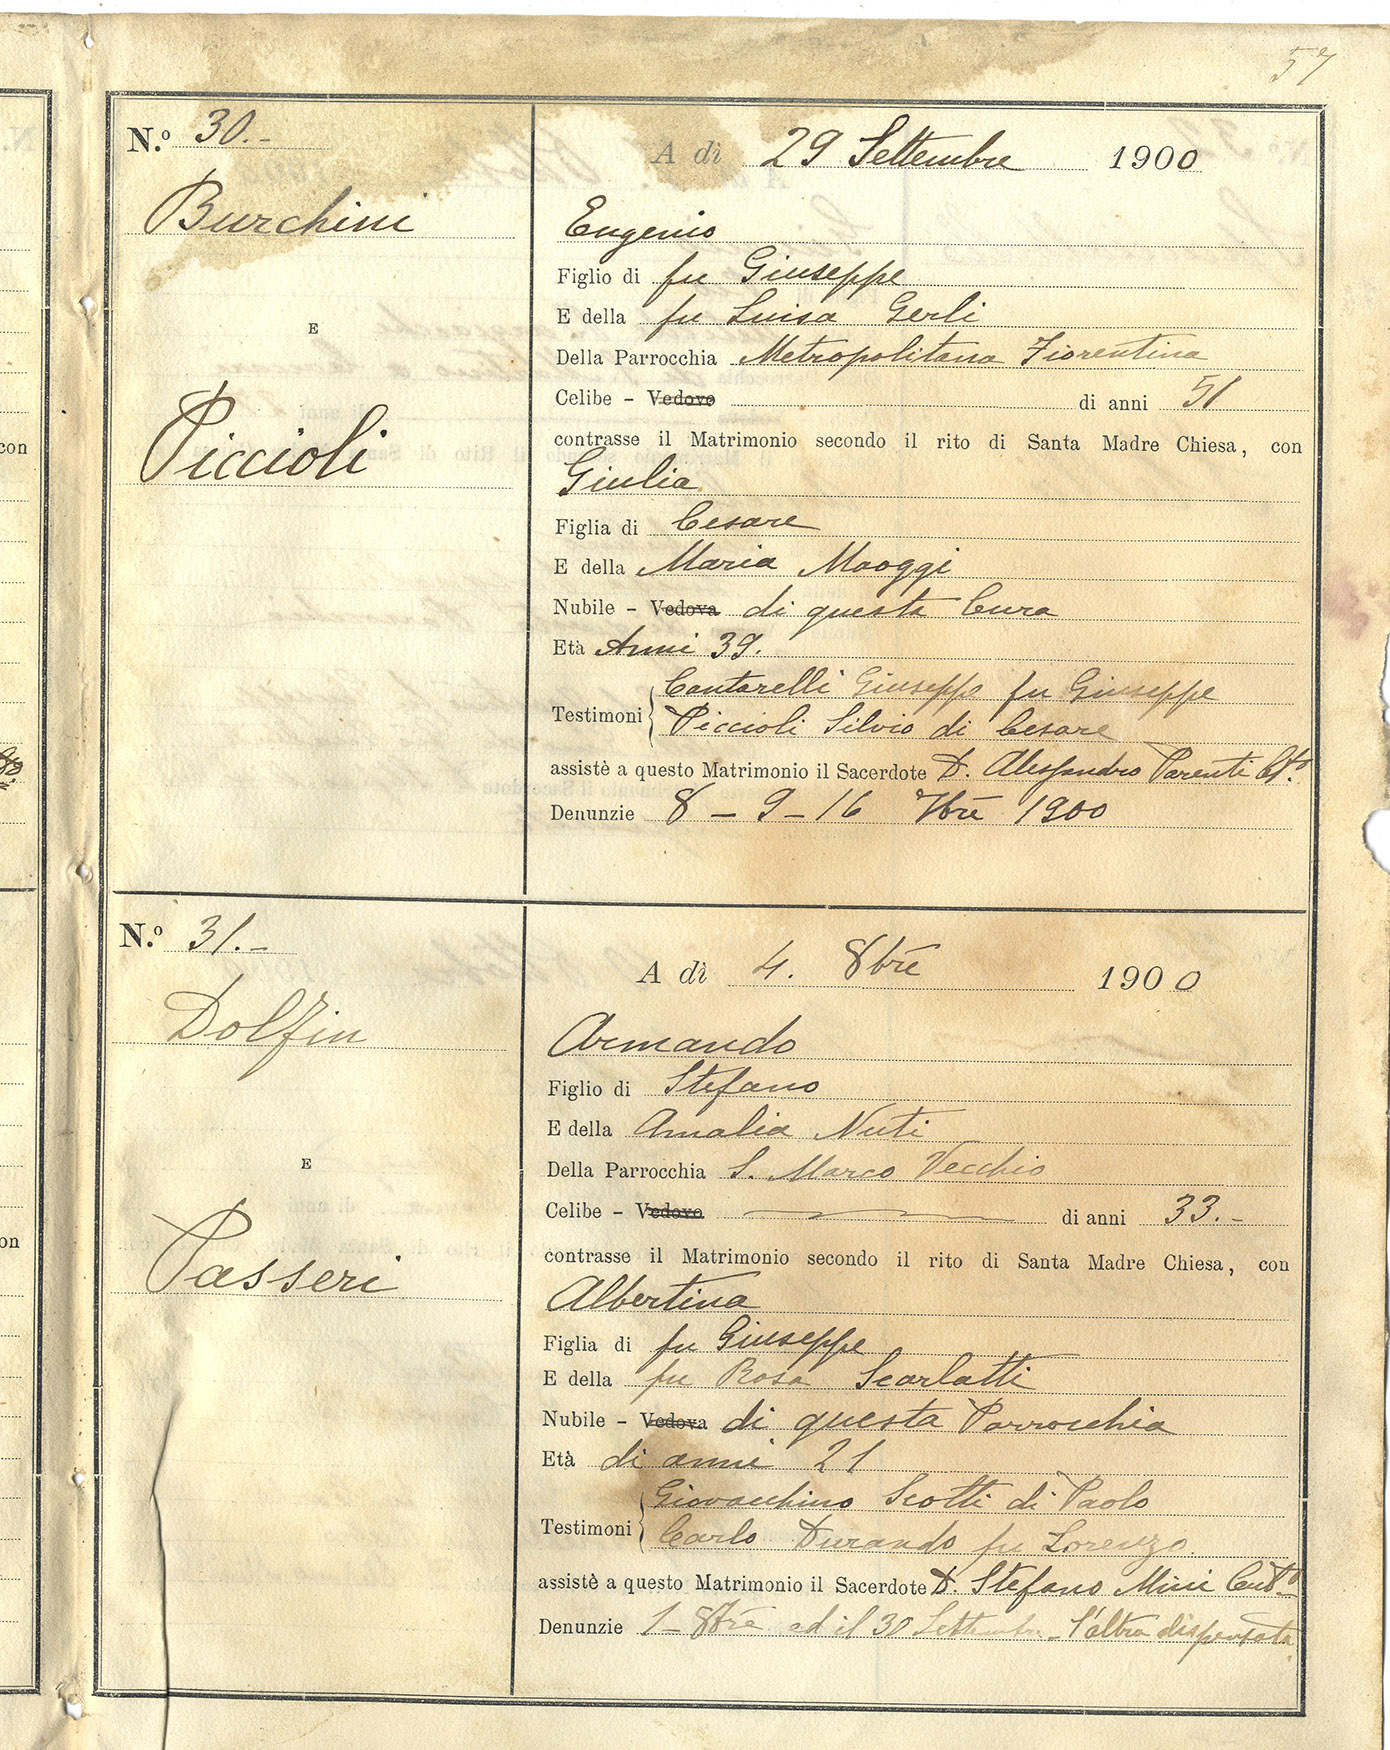 57
N.º 30.-
Burchini
E
Piccioli
A dì 29 Settembre 1900
Eugenio
Figlio di fu Giuseppe
E della fu Luisa Gerli
Della Parrocchia Metropolitana Fiorentina
Celibe - Vedovo di anni 51
contrasse il Matrimonio secondo il rito di Santa Madre Chiesa, con
Giulia
Figlia di Cesare
E della Maria Maoggi
Nubile - Vedova di questa Cura
Età Anni 39.
Testimoni Cantarelli Giuseppe fu Giuseppe
Piccioli Silvio di Cesare
assistè a questo Matrimonio il Sacerdote D. Alessandro Parenti
Denunzie 8 - 9 - 16 7bre 1900
N.º 31.-
Dolfin
E
Passeri
A dì 4. 8bre 1900
Armando
Figlio di Stefano
E della Amalia Nuti
Della Parrocchia S. Marco Vecchio
Celibe - Vedovo di anni 33.-
contrasse il Matrimonio secondo il rito di Santa Madre Chiesa, con
Albertina
Figlia di fu Giuseppe
E della fu Rosa Scarlatti
Nubile - Vedova di questa Parrocchia
Età di anni 21
Testimoni Giovacchino Scotti di Paolo
Carlo Durando fu Lorenzo
assistè a questo Matrimonio il Sacerdote D. Stefano Mini
Denunzie 1- 8bre ed il 30 Settembre - l'altra dispensata
con
on